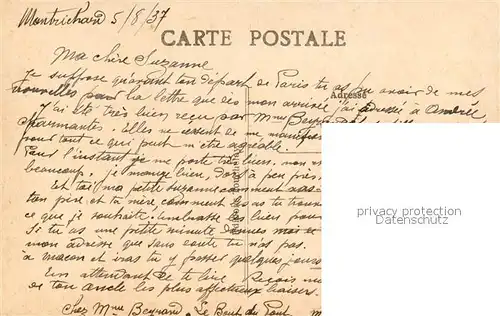 Montrichard 5/8/37
CARTE POSTALE
Ma chère Suzanne
Je suppose qu'avant ton départ de Paris tu as pu avoir de mes
Adresse
nouvelles par la lettre que dès mon arrivée j'ai adressé à Andrée
J'ai été très bien reçu par Mme Beyrard
charmantes, elles ne cessent de me
pour tout ce qui peut m'être agréable.
Pour l'instant je me porte très bien, mon
beaucoup, je mange bien, dors à peu près.
Et toi ma petite Suzanne comment vas-
ton père et ta mère comment les as tu
ce que je souhaite. Embrasse les bien pour
Si tu as une petite minute donnes moi
mon adresse que sans doute tu n'as pas.
à Macon et iras tu y passer quelques jours
En attendant de te lire Reçois
de ton oncle les plus affectueux baisers.
Chez Mme Beyrard, Le Bout du Pont
privacy protection
Datenschutz